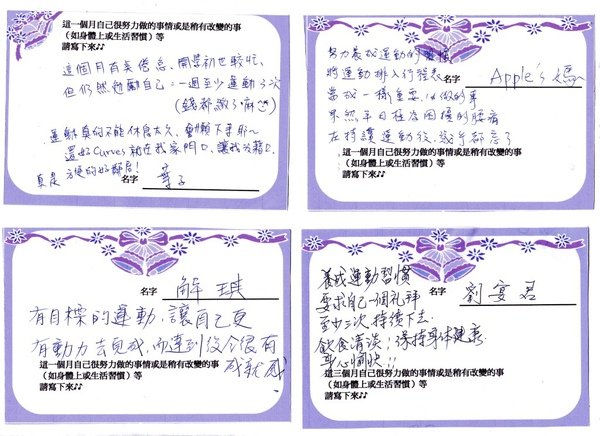 這一個月自己很努力做的事情或是稍有改變的事
(如身體上或生活習慣) 等
請寫下來♪♪
這個月有點倦怠、開業初也較忙、
但仍然勉勵自己:一週至少運動3次
(錢都繳了嘛)
運動真的不能休息太久、會懶下來耶~
還好Curves就在我家門口、讓我沒藉口、
真是方便的好鄰居!
名字
努力養成運動的習慣
將運動排入行程表
名字 Apple's 媽
當成一樣重要的事
果然平日極為困擾的腰痛
在持續運動後,幾乎都忘了
這一個月自己很努力做的事情或是稍有改變的事
(如身體上或生活習慣) 等
請寫下來♪♪
名字 解琪
有目標的運動,讓自己更
有動力去完成,而達到後今很有
成就感
這一個月自己很努力做的事情或是稍有改變的事
(如身體上或生活習慣) 等
請寫下來♪♪
養成運動習慣
要求自己一個禮拜
名字 劉宴君
至少三次,持續下去.
飲食清淡;保持身体健康
身心愉快!!
這三個月自己很努力做的事情或是稍有改變的事
(如身體上或生活習慣) 等
請寫下來♪♪